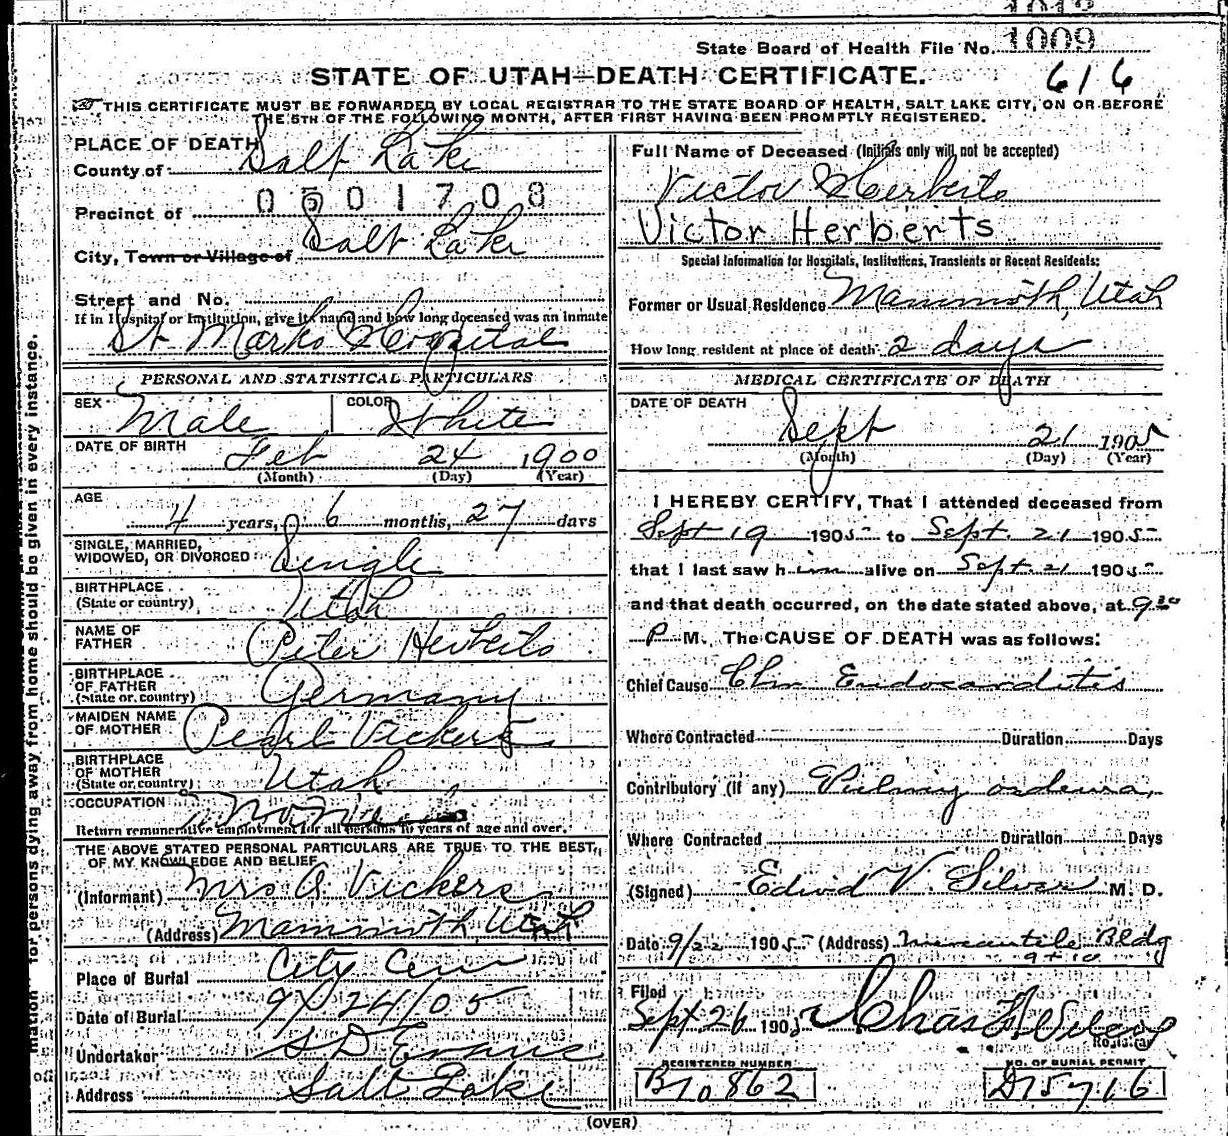 1012
State Board of Health File No. 1009
STATE OF UTAH—DEATH CERTIFICATE.
616
THIS CERTIFICATE MUST BE FORWARDED BY LOCAL REGISTRAR TO THE STATE BOARD OF HEALTH, SALT LAKE CITY, ON OR BEFORE
THE 5TH OF THE FOLLOWING MONTH, AFTER FIRST HAVING BEEN PROMPTLY REGISTERED.
PLACE OF DEATH
County of Salt Lake
0501708
Precinct of
City, Town or Village of Salt Lake
Street and No.
If in Hospital or Institution, give its name and how long deceased was an inmate
St Marks Hospital
PERSONAL AND STATISTICAL PARTICULARS
SEX Male COLOR White
DATE OF BIRTH Feb 24 1900
(Month) (Day) (Year)
AGE
4 years, 6 months, 27 days
SINGLE, MARRIED,
WIDOWED, OR DIVORCED Single
BIRTHPLACE
(State or country) Utah
NAME OF
FATHER Peter Herberts
BIRTHPLACE
OF FATHER
(State or country) Germany
MAIDEN NAME
OF MOTHER Pearl Vickers
BIRTHPLACE
OF MOTHER
(State or country) Utah
OCCUPATION
Return remunerative employment for all persons 10 years of age and over.
THE ABOVE STATED PERSONAL PARTICULARS ARE TRUE TO THE BEST
OF MY KNOWLEDGE AND BELIEF
(Informant) Mrs A. Vickers
(Address) Mammoth, Utah
Place of Burial City Cem
Date of Burial 9/24/05
Undertaker S D Evans
Address Salt Lake
Full Name of Deceased (Initials only will not be accepted)
Victor Herberts
Victor Herberts
Special Information for Hospitals, Institutions, Transients or Recent Residents:
Former or Usual Residence Mammoth, Utah
How long resident at place of death 2 days
MEDICAL CERTIFICATE OF DEATH
DATE OF DEATH
Sept 21 1905
(Month) (Day) (Year)
I HEREBY CERTIFY, That I attended deceased from
Sept 19 1905 to Sept. 21 1905
that I last saw him alive on Sept. 21 1905
and that death occurred, on the date stated above, at 9 30
P M. The CAUSE OF DEATH was as follows:
Chief Cause Chr Endocarditis
Where Contracted Duration Days
Contributory (if any) oedema
Where Contracted Duration Days
(Signed) V. Silver M. D.
Date 9/22 1905 (Address) Mercantile Bldg
Filed
Sept 26 1905 Chas
Registrar
REGISTERED NUMBER
B10862
NO. OF BURIAL PERMIT
D15716
(OVER)
for persons dying away from home should be given in every instance.